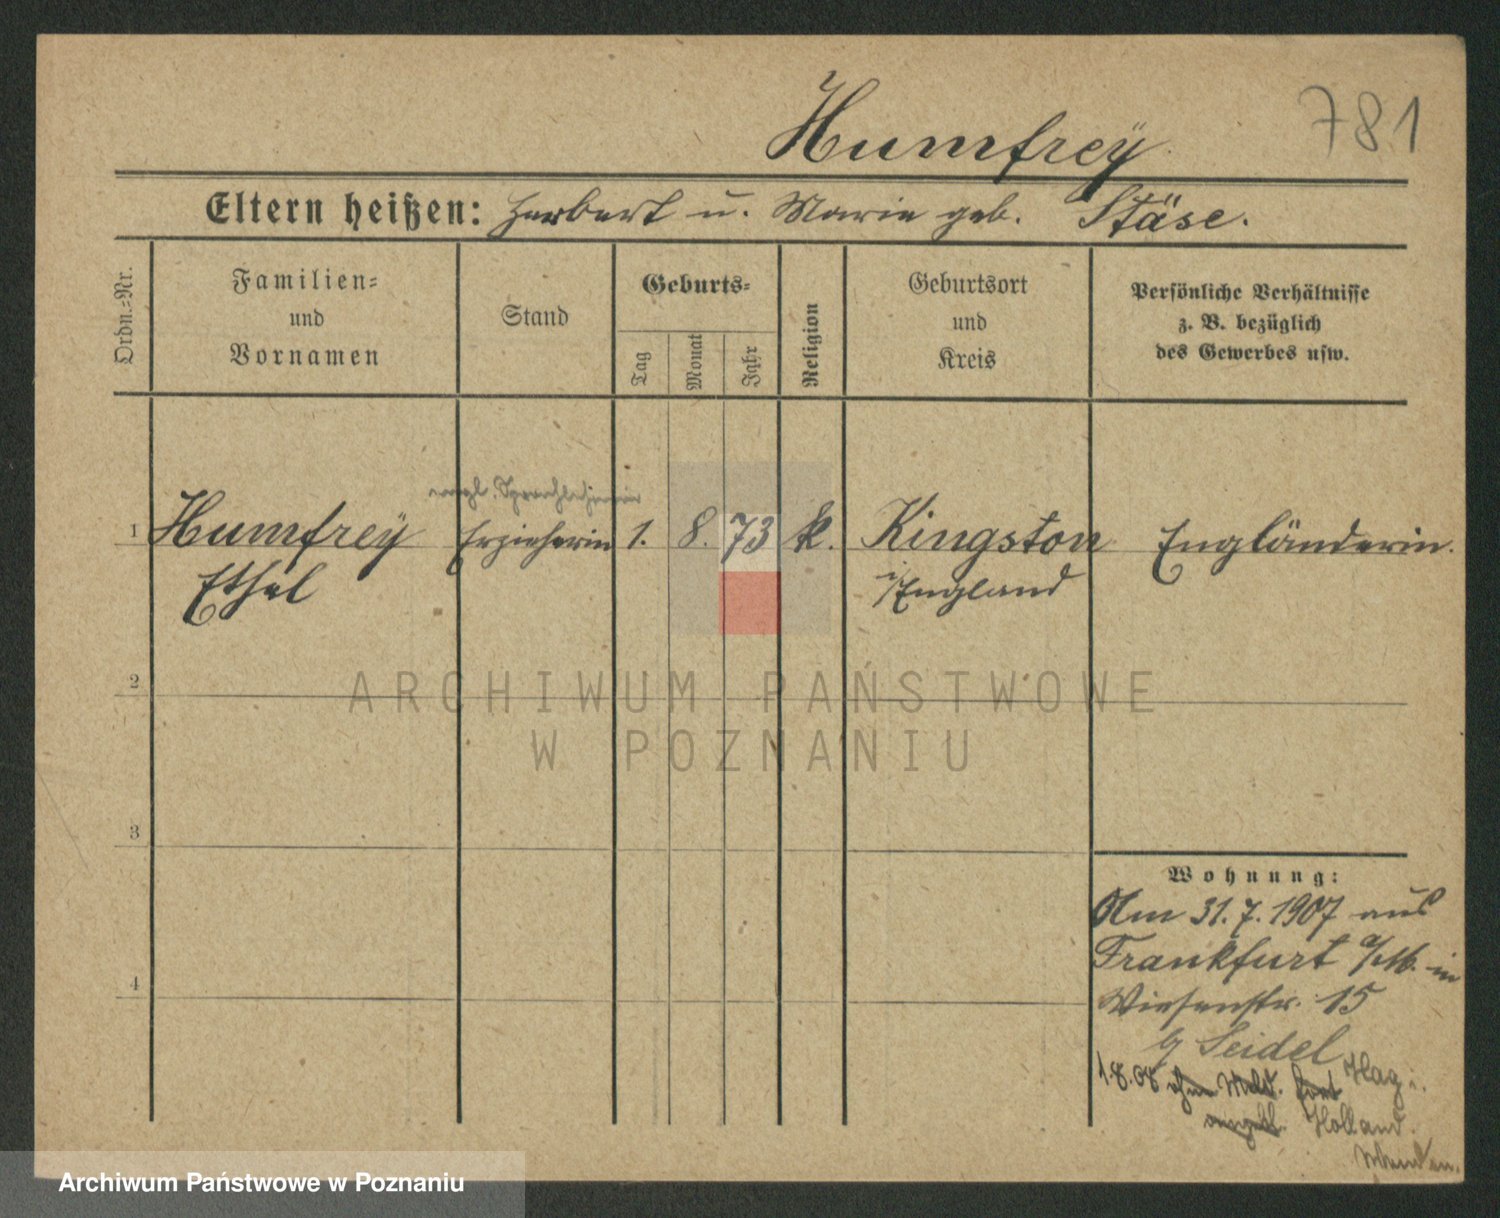 Humfrey
781
Eltern heißen: Herbert u. Marie geb. Stäse.
Ordn.=Nr.
Familien=
und
Vornamen
Stand
Geburts=
Tag
Monat
Jahr
Religion
Geburtsort
und
Kreis
Persönliche Verhältnisse
z. B. bezüglich
des Gewerbes usw.
engl. Sprachlehrerin
1 Humfrey Erzieherin 1. 8. 73 k. Kingston Engländerin.
Ethel i/England
2
ARCHIWUM PAŃSTWOWE
W POZNANIU
3
Wohnung:
Am 31.7.1907 aus
Frankfurt a/M. in
4
Wiesenstr. 15
b/ Seidel
1.8.08 ohne Meld. fort Haag i.
angebl. Holland.
Archiwum Państwowe w Poznaniu